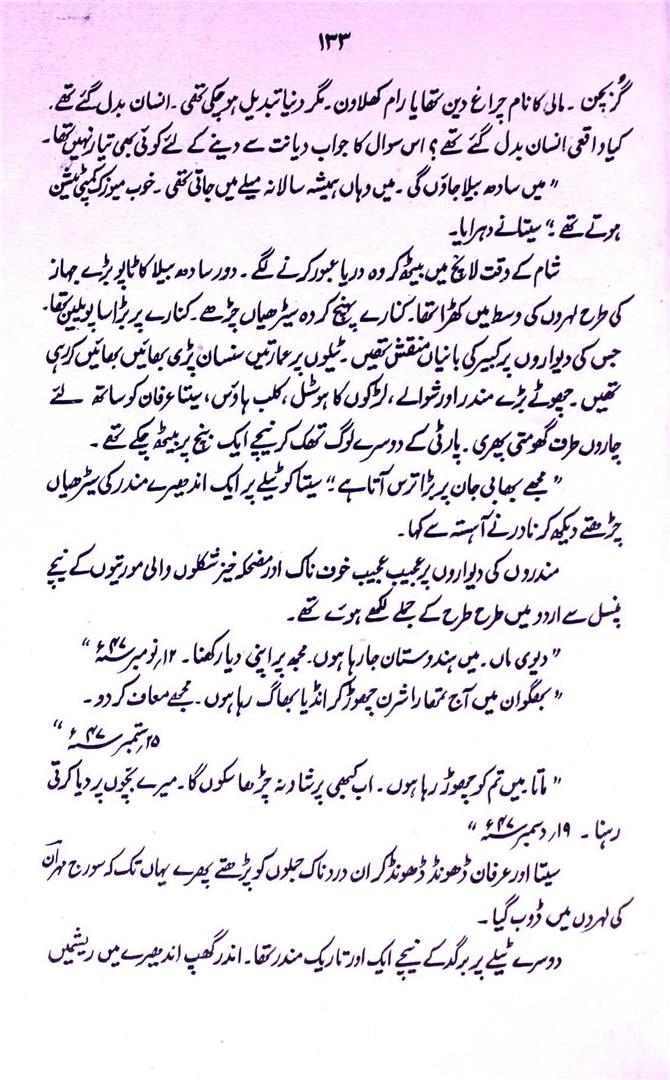 ۱۳۳
گُربچن ۔ مالی کا نام چراغ دین تھا یا رام کھلاون ۔ مگر دنیا تبدیل ہوچکی تھی ۔ انسان بدل گئے تھے ۔
کیا واقعی انسان بدل گئے تھے ؟ اس سوال کا جواب دیانت سے دینے کے لئے کوئی بھی تیار نہیں تھا ۔
” میں سادھ بیلا جاؤں گی ۔ میں وہاں ہمیشہ سالانہ میلے میں جاتی تھی ۔ خوب میوزک کمپی ٹیشن
ہوتے تھے ۔“ سیتا نے دہرایا ۔
شام کے وقت لانچ میں بیٹھ کر وہ دریا عبور کرنے لگے ۔ دور سادھ بیلا کا ٹاپو بڑے جہاز
کی طرح لہروں کی وسط میں کھڑا تھا ۔ کنارے پر پہنچ کر وہ سیڑھیاں چڑھے ۔ کنارے پر بڑا سا پویلین تھا ۔
جس کی دیواروں پر کبیر کی بانیاں منقش تھیں ۔ ٹیلوں پر عمارتیں سنسان پڑی بھائیں بھائیں کر رہی
تھیں ۔ چھوٹے بڑے مندر اور شوالے ، لڑکوں کا ہوسٹل ، کلب ہاؤس ، سیتا عرفان کو ساتھ لئے
چاروں طرف گھومتی پھری ۔ پارٹی کے دوسرے لوگ تھک کر نیچے ایک بنچ پر بیٹھ چکے تھے ۔
” مجھے بھابی جان پر بڑا ترس آتا ہے “ سیتا کو ٹیلے پر ایک اندھیرے مندر کی سیڑھیاں
چڑھتے دیکھ کر نادر نے آہستہ سے کہا ۔
مندروں کی دیواروں پر عجیب عجیب خوف ناک اور مضحکہ خیز شکلوں والی مورتیوں کے نیچے
پنسل سے اردو میں طرح طرح کے جملے لکھے ہوئے تھے ۔
” دیوی ماں ۔ میں ہندوستان جا رہا ہوں ۔ مجھ پر اپنی دیا رکھنا ۔ ۱۲؍ نومبر ۴۷ء “
” بھگوان میں آج تمھارا شرن چھوڑ کر انڈیا بھاگ رہا ہوں ۔ مجھے معاف کر دو ۔
۲۵؍ ستمبر ۴۷ء “
” ماتا میں تم کو چھوڑ رہا ہوں ۔ اب کبھی پرشاد نہ چڑھا سکوں گا ۔ میرے بچّوں پر دیا کرتی
رہنا ۔ ۱۹؍ دسمبر ۴۷ء “
سیتا اور عرفان ڈھونڈ ڈھونڈ کر ان دردناک جملوں کو پڑھتے پھرے یہاں تک کہ سورج مہران
کی لہروں میں ڈوب گیا ۔
دوسرے ٹیلے پر برگد کے نیچے ایک اور تاریک مندر تھا ۔ اندر گھپ اندھیرے میں ریشمیں